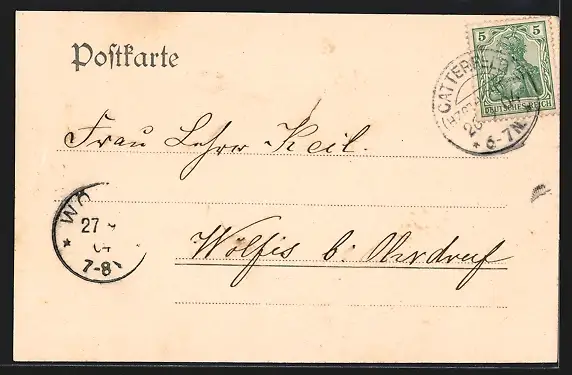 Postkarte
5 5
DEUTSCHES REICH
CATTERFELD
6-7N.
Frau Lehrer Keil.
WÖ
27
04
7-8
Wölfis b. Ohrdruf